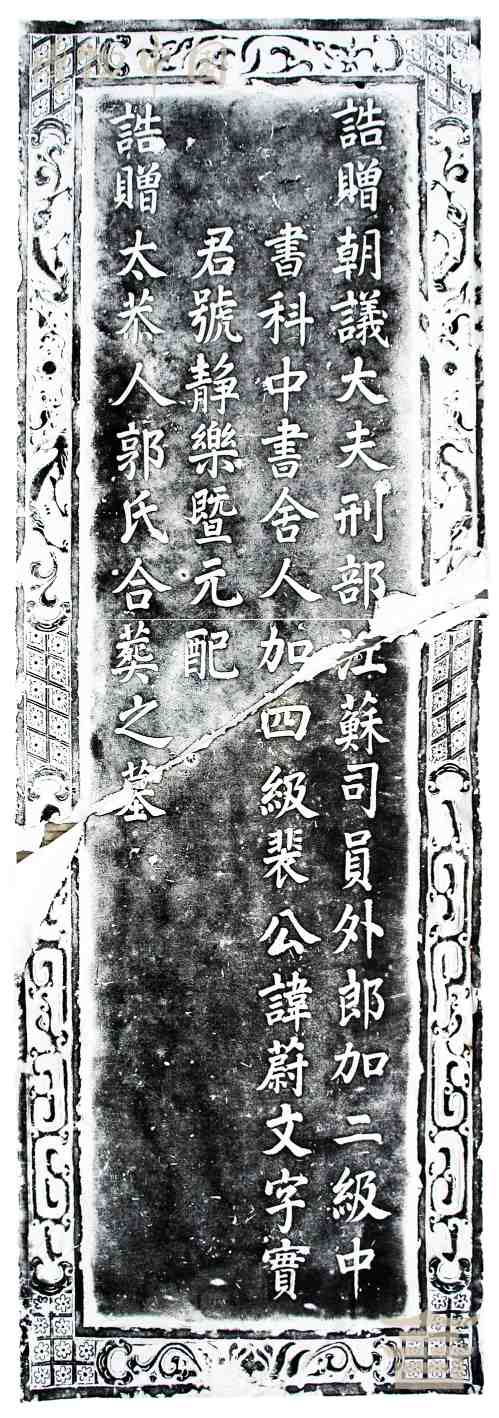 誥贈朝議大夫刑部江蘇司員外郎加二級中
書科中書舍人加四級裴公諱蔚文字實
君號靜樂暨元配
誥贈太恭人郭氏合葬之墓